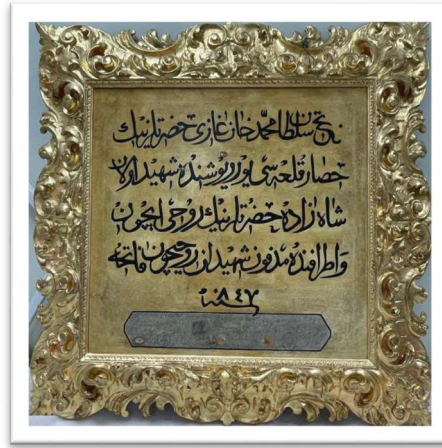 فاتح سلطان محمد خان غازى حضرتلرينك
حصار قلعه سى يوريوشنده شهيد اولان
شاه زاده حضرتلرينك روحى ايچون
واطرافنده مدفون شهيدان روحيچون فاتحه
سنه ٨٤٧